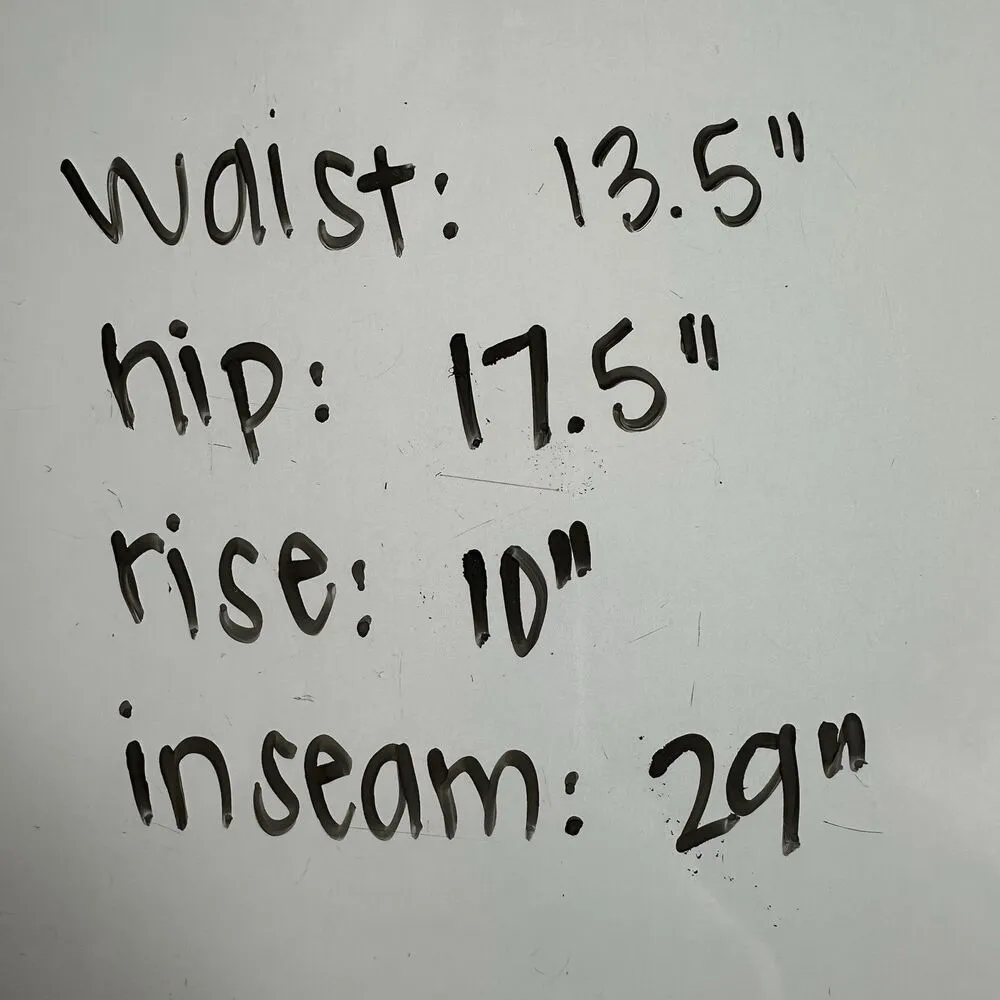 waist: 13.5"
hip: 17.5"
rise: 10"
inseam: 29"